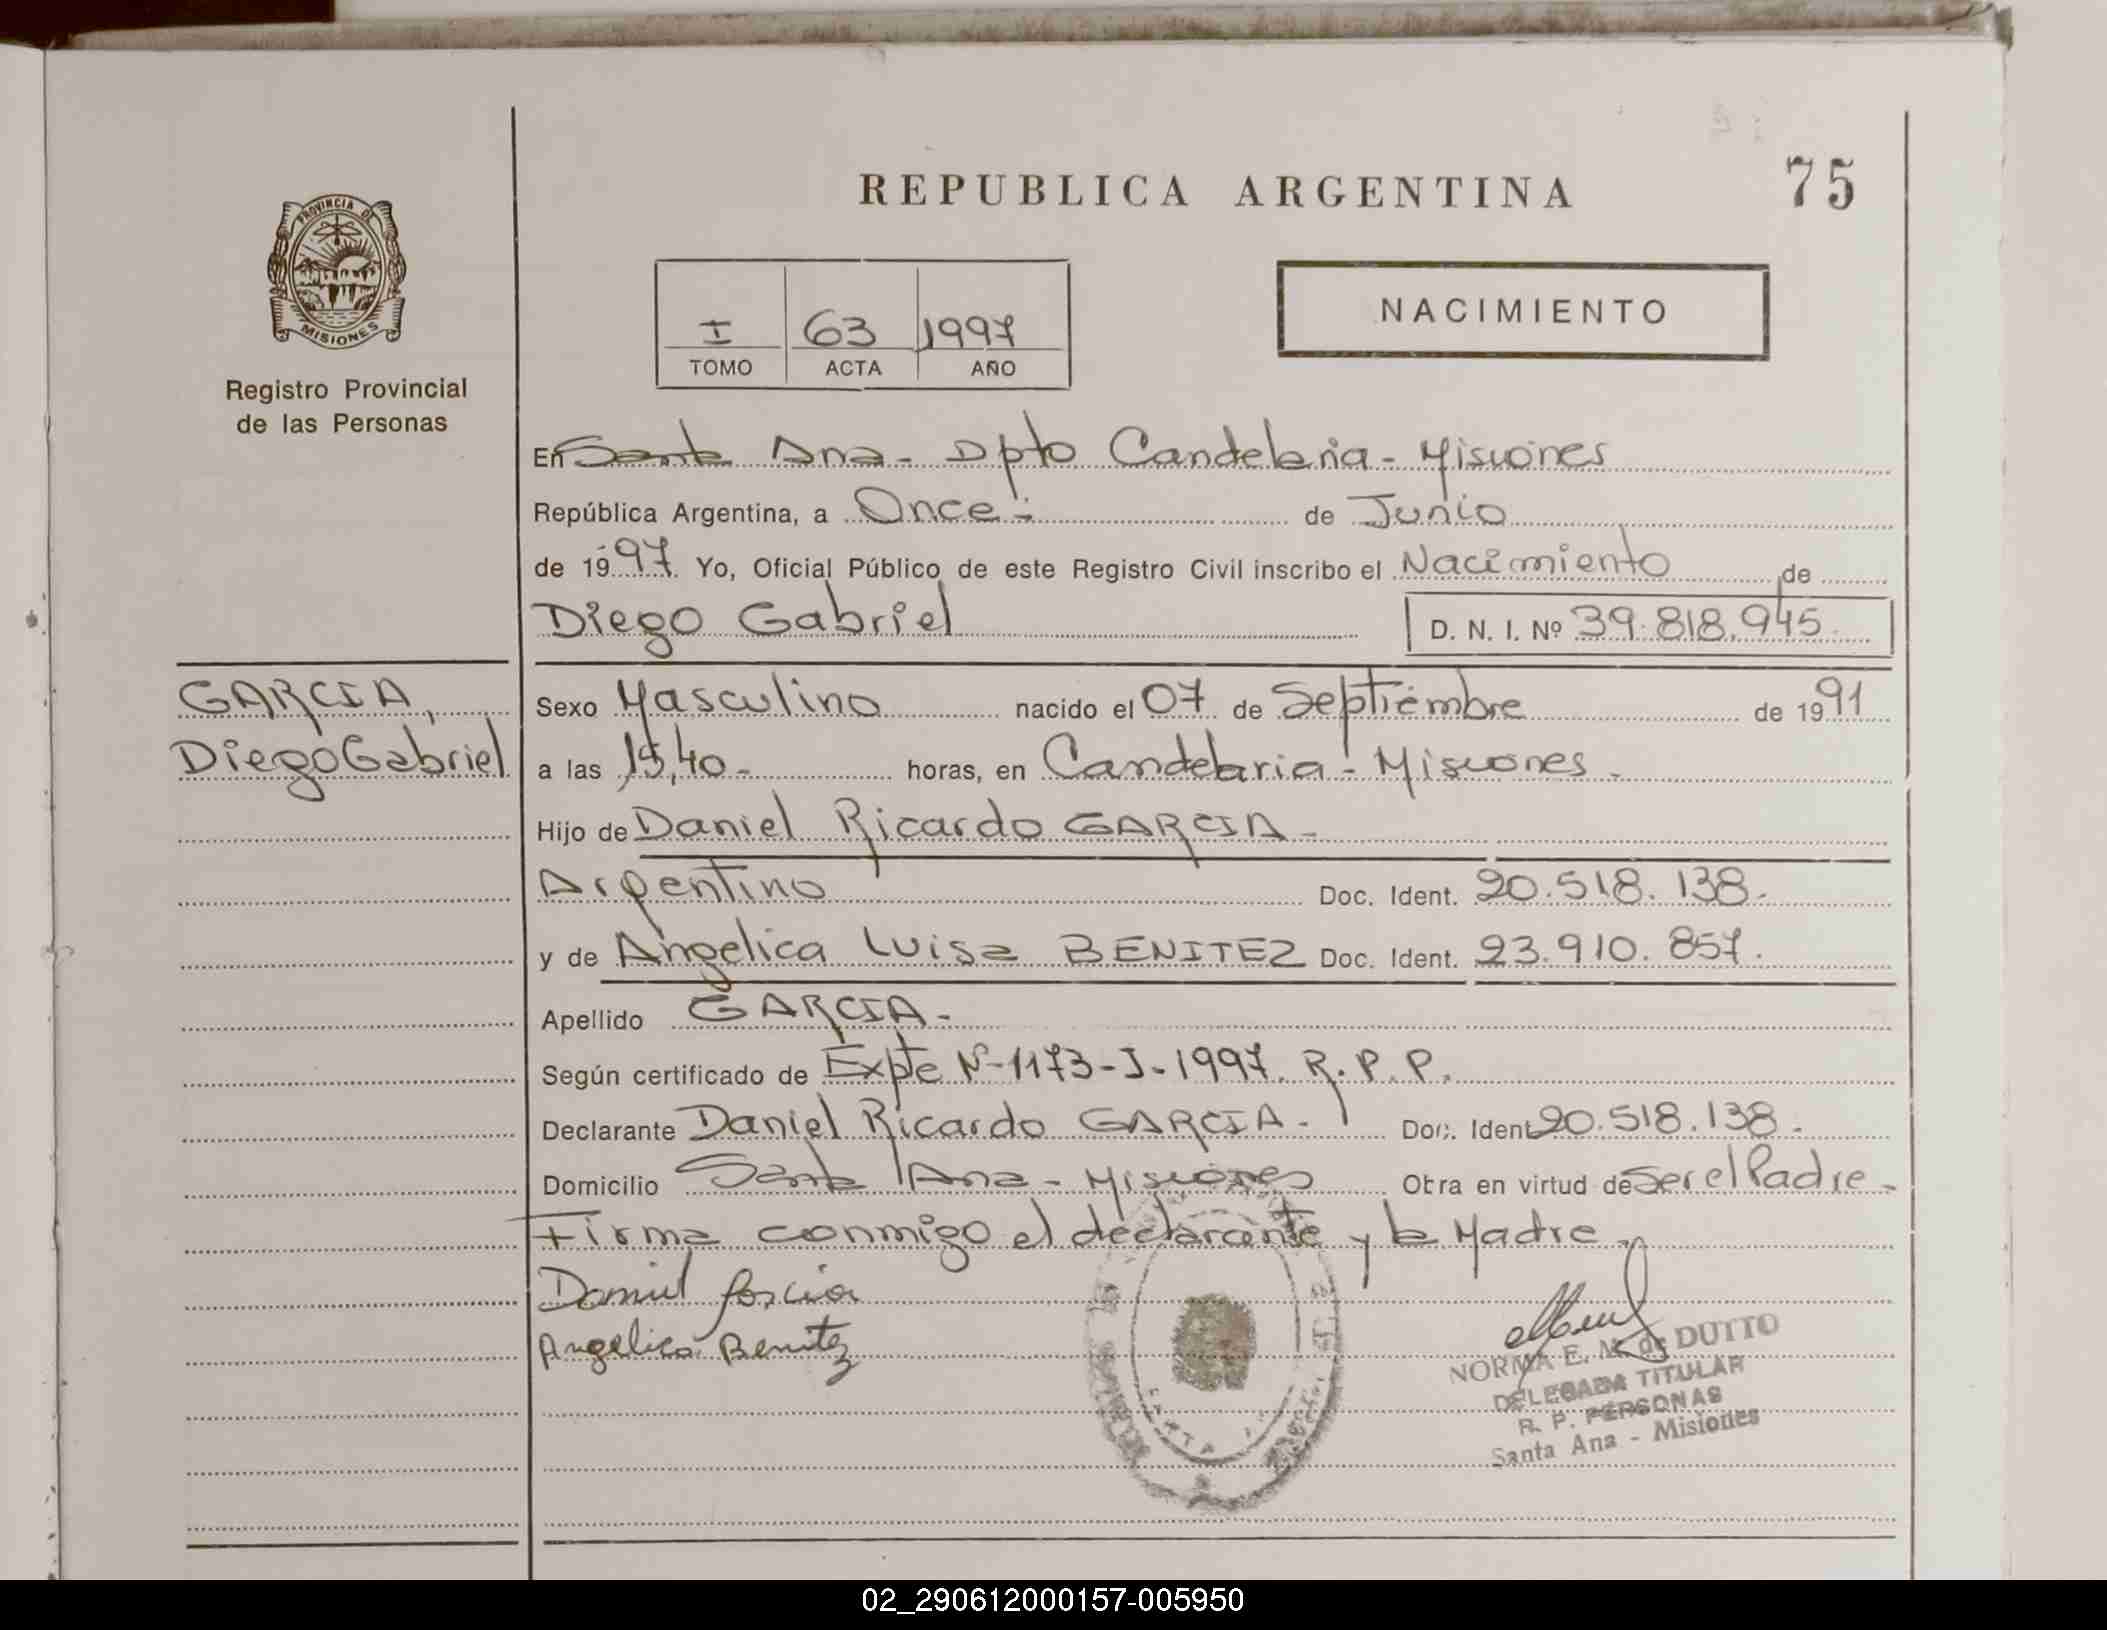 REPUBLICA ARGENTINA
75
PROVINCIA DE
MISIONES
Registro Provincial
de las Personas
I 63 1997
TOMO ACTA AÑO
NACIMIENTO
En Santa Ana - Dpto Candelaria - Misiones
República Argentina, a Once - de Junio
de 1997. Yo, Oficial Público de este Registro Civil inscribo el Nacimiento de
Diego Gabriel D. N. I. Nº 39.818.945.
GARCIA,
Diego Gabriel
Sexo Masculino nacido el 07 de Septiembre de 1991
a las 15,40 - horas, en Candelaria - Misiones.
Hijo de Daniel Ricardo GARCIA -
Argentino Doc. Ident. 20.518.138.
y de Angelica Luisa BENITEZ Doc. Ident. 23.910.857.
Apellido GARCIA -
Según certificado de Expte Nº 1173-J-1997. R.P.P.
Declarante Daniel Ricardo GARCIA - Doc. Ident 20.518.138.
Domicilio Santa Ana - Misiones Obra en virtud de ser el Padre -
Firma conmigo el declarante y la Madre.
Daniel Garcia
Angelica Benitez
NORMA E. M. de DUTTO
DELEGADA TITULAR
R. P. PERSONAS
Santa Ana - Misiones
02_290612000157-005950